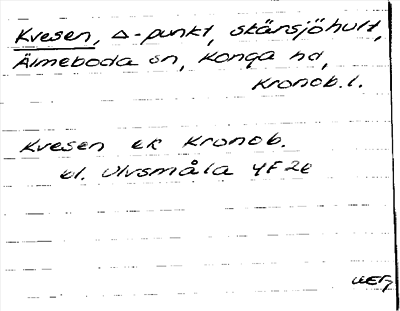 Kvesen, Δ-punkt, Skärsjöhult,
Älmeboda sn, Konga hd,
Kronob. l.
Kvesen ek Kronob.
bl. Ulvsmåla 4F 2e